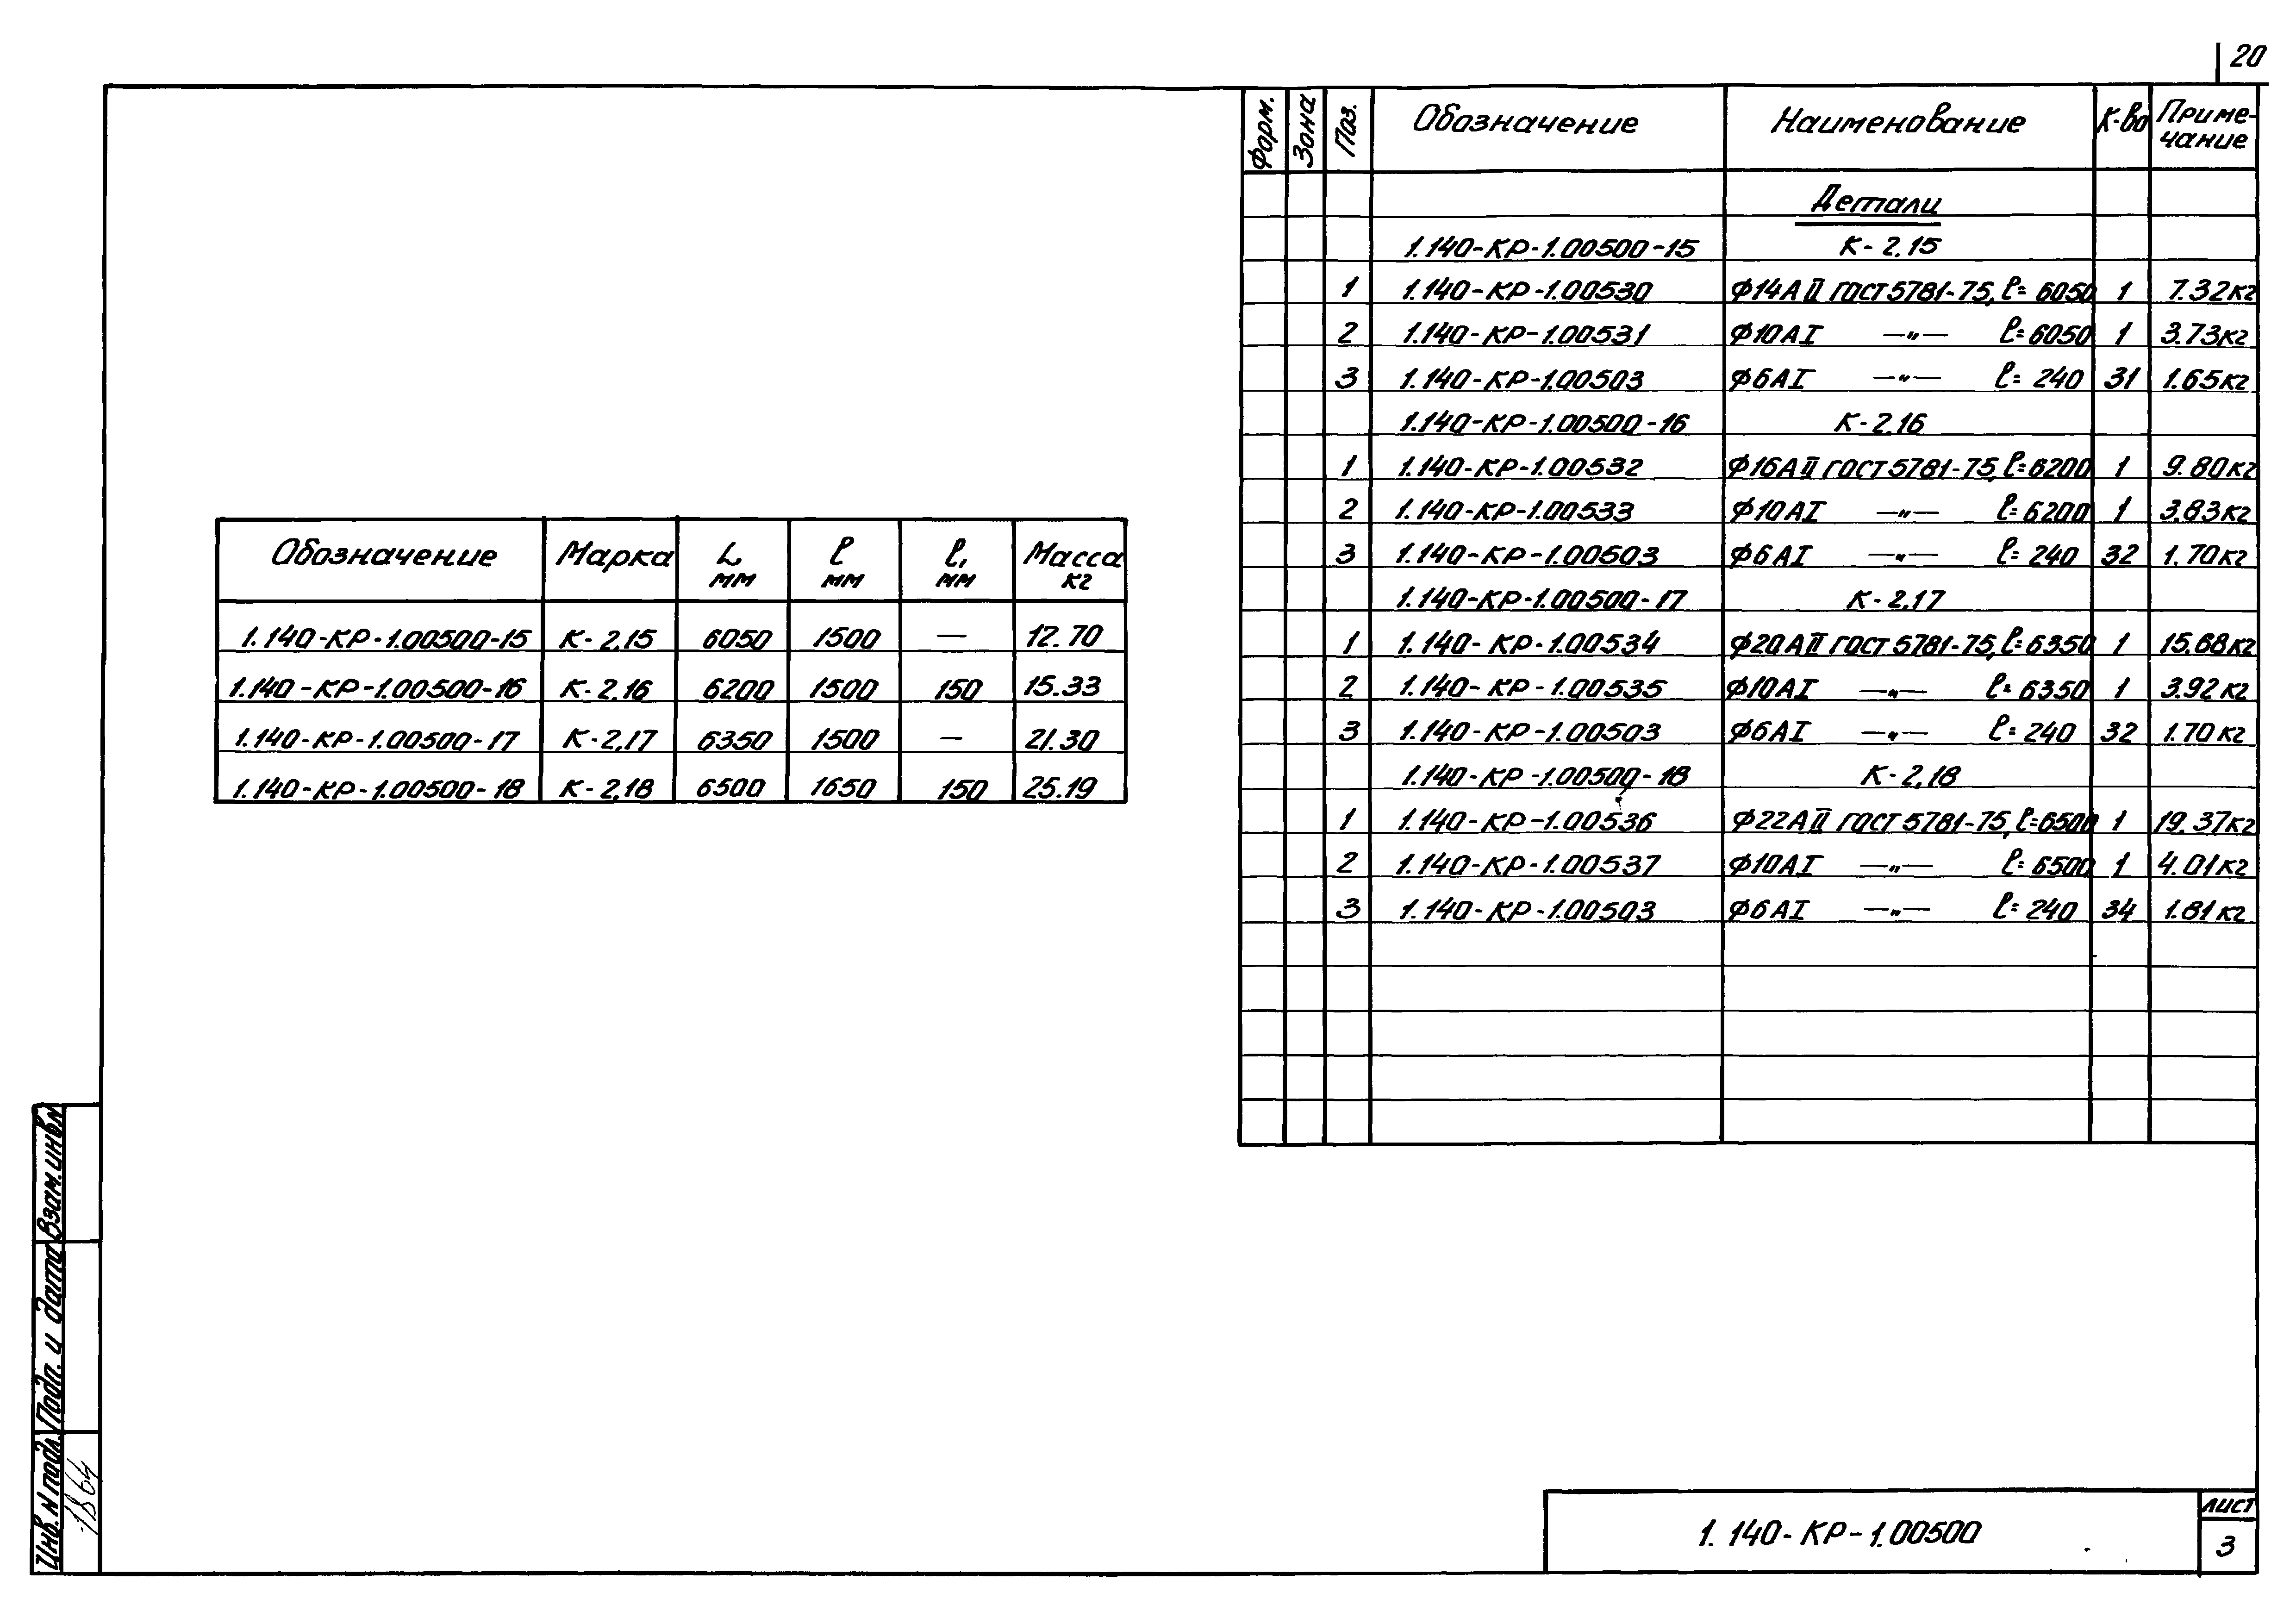 20
Обозначение Марка L мм ℓ мм ℓ₁ мм Масса кг
1.140-КР-1.00500-15 К-2.15 6050 1500 — 12.70
1.140-КР-1.00500-16 К-2.16 6200 1500 150 15.33
1.140-КР-1.00500-17 К-2.17 6350 1500 — 21.30
1.140-КР-1.00500-18 К-2.18 6500 1650 150 25.19
Форм. Зона Поз. Обозначение Наименование К-во Приме-
чание
Детали
1.140-КР-1.00500-15 К-2.15
1 1.140-КР-1.00530 Ф14АII ГОСТ 5781-75, ℓ=6050 1 7.32кг
2 1.140-КР-1.00531 Ф10АI —„— ℓ=6050 1 3.73кг
3 1.140-КР-1.00503 Ф6АI —„— ℓ=240 31 1.65кг
1.140-КР-1.00500-16 К-2.16
1 1.140-КР-1.00532 Ф16АII ГОСТ 5781-75, ℓ=6200 1 9.80кг
2 1.140-КР-1.00533 Ф10АI —„— ℓ=6200 1 3.83кг
3 1.140-КР-1.00503 Ф6АI —„— ℓ=240 32 1.70кг
1.140-КР-1.00500-17 К-2.17
1 1.140-КР-1.00534 Ф20АII ГОСТ 5781-75, ℓ=6350 1 15.68кг
2 1.140-КР-1.00535 Ф10АI —„— ℓ=6350 1 3.92кг
3 1.140-КР-1.00503 Ф6АI —„— ℓ=240 32 1.70кг
1.140-КР-1.00500-18 К-2.18
1 1.140-КР-1.00536 Ф22АII ГОСТ 5781-75, ℓ=6500 1 19.37кг
2 1.140-КР-1.00537 Ф10АI —„— ℓ=6500 1 4.01кг
3 1.140-КР-1.00503 Ф6АI —„— ℓ=240 34 1.81кг
Взам. инв. №
Подп. и дата
Инв. № подл.
1864
1.140-КР-1.00500
лист
3